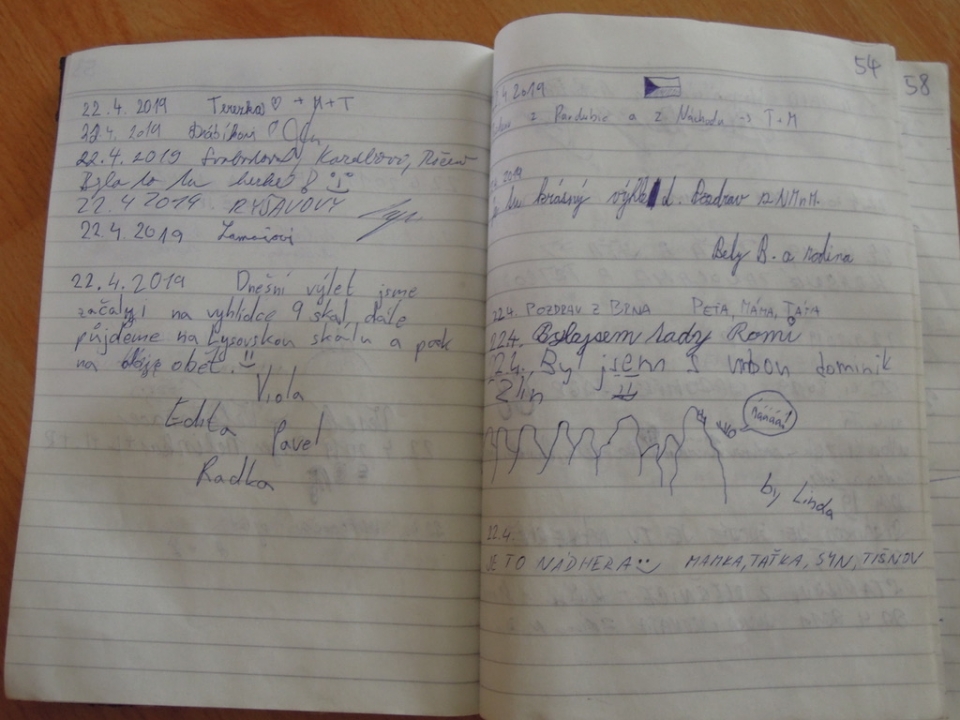 22.4.2019 Terezka ♡ + M+T
22.4.2019
22.4.2019
Bylo to tu hezké
22.4.2019 RYŠAVOVÝ
22.4.2019
22.4.2019 Dnešní výlet jsme
začaly na vyhlídce 9 skal dále
půjdeme na Lysovskou skálu a pock
na oběť.
Viola
Edita Pavel
Radka
54
58
.4.2019
z Pardubic a z Náchoda → T+M
2019
tu krásný výhled. Pozdrav z NMnM.
Bely B. a rodina
22.4. POZDRAV Z BRNA PEŤA, MÁMA, TÁTA
22.4. Bylajsem tady Romi
22. Byl jsem s vrbou dominik
Zlín
Mááááá!
by Linda
22.4.
JE TO NÁDHERA MAMKA, TAŤKA, SYN, TIŠNOV